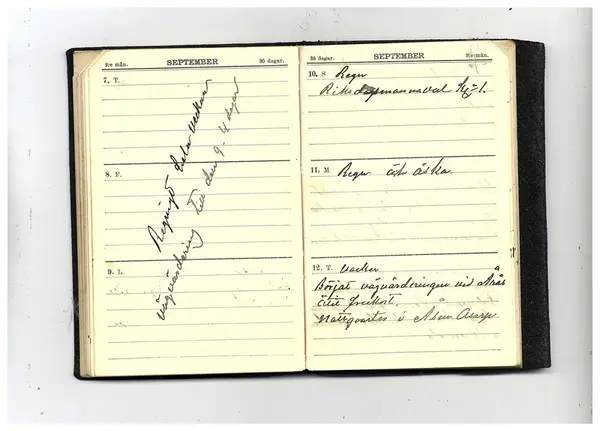 9:e mån. SEPTEMBER 30 dagar.
7. T.
8. F.
9. L.
Regnigt hela veckan
vägvärdering till den 9 - 4 dagar
30 dagar. SEPTEMBER 9:e mån.
10. S Regn
Riksdagsmannaval
11. M. Regn och åska
12. T. vacker
Börjat vägvärderingen vid
ätit frukost.
Nattquarter i Åsen